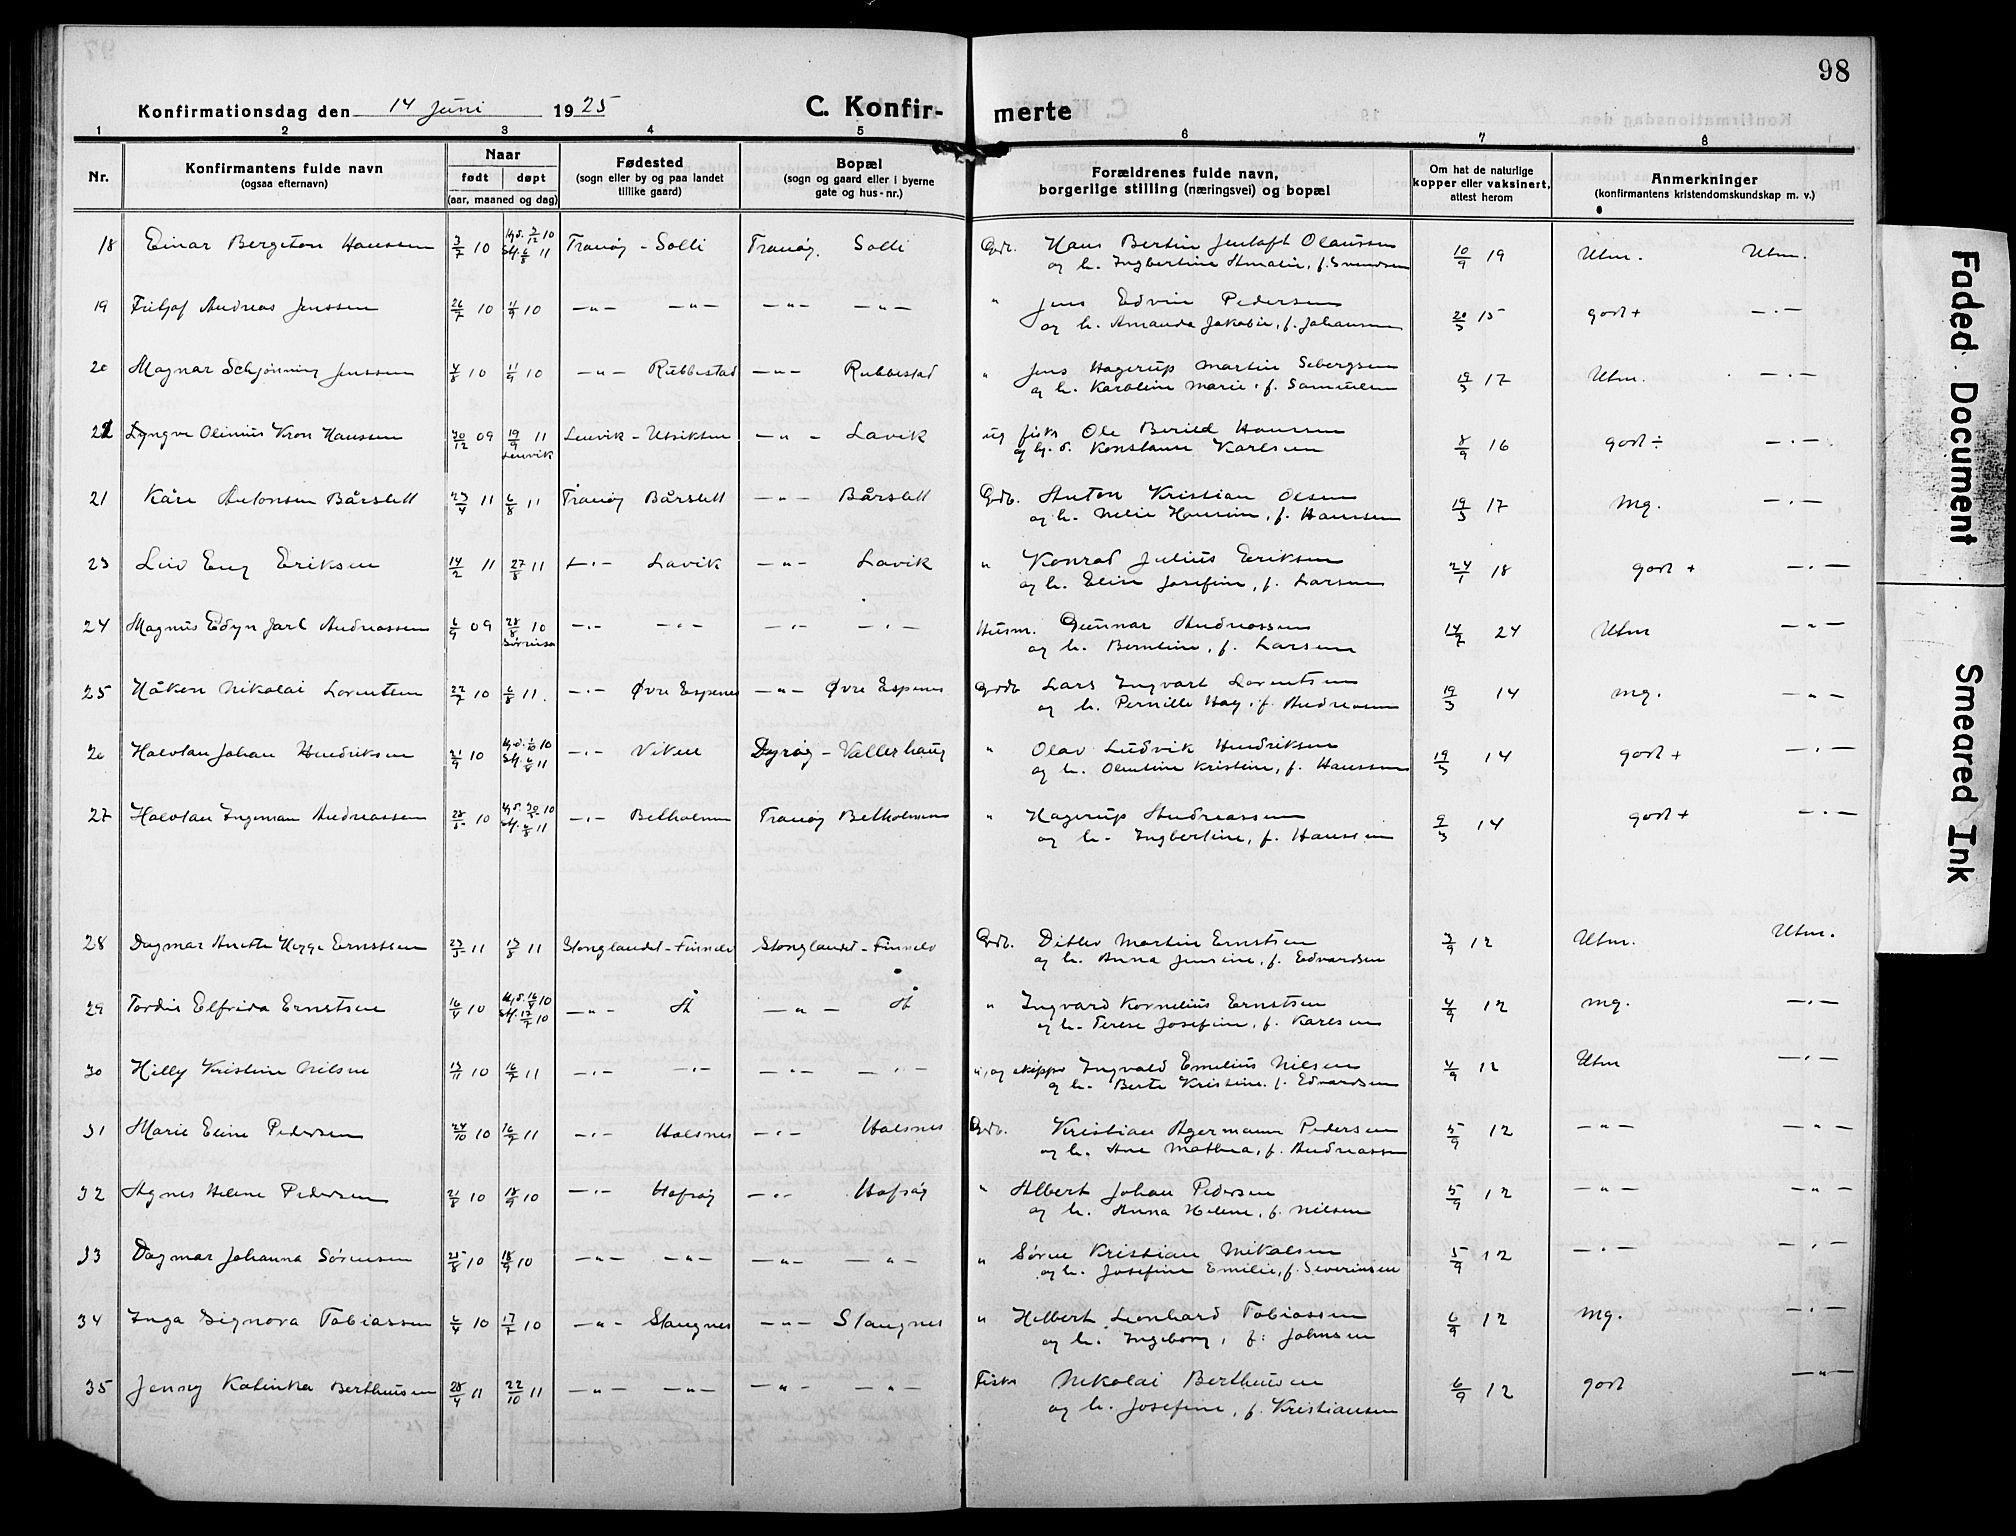 98
Konfirmationsdag den 14 Juni 1925 C. Konfir- merte
1 2 3 4 5 6 7 8
Nr. Konfirmantens fulde navn (ogsaa efternavn) Naar født døpt (aar, maaned og dag) Fødested (sogn eller by og paa landet tillike gaard) Bopæl (sogn og gaard eller i byerne gate og hus-nr.) Forældrenes fulde navn, borgerlige stilling (næringsvei) og bopæl Om hat de naturlige kopper eller vaksinert, attest herom Anmerkninger (konfirmantens kristendomskundskap m. v.)
18 Einar Bergiton Hanssen 3/7 10 Hjd. 3/12 10 Tranøy - Solli Tranøy. Solli Gdb. Hans Bertin Jentoft Olaussen 10/9 19 Utm. Utm.
Stf. 6/8 11 og h. Ingbertine Amalie, f. Svendsen
19 Fritjof Andreas Jenssen 26/7 10 11/9 10 —"— —"— —"— —"— " Jens Edvin Pedersen 20/3 15 godt + —"—
og h. Amanda Jakobie, f. Johansen
20 Magnar Schjønning Jenssen 4/8 10 11/9 10 —"— Rubbestad —"— Rubbestad " Jens Hagerup Martin Sebergsen 19/3 17 Utm. —"—
og h. Karoline Marie, f. Samuelsen
22 Yngve Olinius Kron Hanssen 30/12 09 19/9 11 Lenvik - —"— Lavik ug fisk Ole Berild Hanssen 8/9 16 godt ÷ —"—
Lenvik og Konstanse Karlsen
21 Kåre Antonsen Bårslett 23/4 11 6/8 11 Tranøy Bårslett —"— Bårslett Gdb. Anton Kristian Olsen 19/3 17 Mg. —"—
og h. f. Hanssen
23 Leiv Eriksen 14/2 11 27/8 11 —"— Lavik —"— Lavik " Konrad Julius Eriksen 24/1 18 godt + —"—
og h. Elise Josefine, f. Larsen
24 Magnus Edyn Jarl Andreassen 6/9 09 28/8 10 —"— —"— —"— —"— Husm. Gunnar Andreassen 14/7 24 Utm —"—
Sørreisa og h. Berntine, f. Larsen
25 Håken Nikolai Lorentsen 27/7 10 6/8 11. —"— Øvre Espenes —"— Øvre Espenes Gdb Lars Ingvart Lorentsen 19/3 14 mg. —"—
og h. Pernille Hay, f. Andreassen
26 Halvdan Johan Hendriksen 21/9 10 10 —"— Viken Dyrøy - Vallerhaug " Olav Ludvik Hendriksen 19/3 14 godt + —"—
Stf. 6/8 11 og h. Olentine Kristine, f. Hanssen
27 Halvdan Ingeman Andreassen 28/5 10 Hjd. 30/5 10 —"— Betholmen Tranøy Betholmen " Hagerup Andreassen 9/3 14 godt + —"—
Stf. 6/8 11 og h. Ingbertine, f. Hanssen
28 Dagmar Anette Hegge Ernstsen 23/3 11 13/8 11 Stonglandet - Finnelv Stonglandet - Finnelv Gdb. Ditlev Martin Ernstsen 3/9 12 Utm. Utm.
og h. Anna Jensine, f. Edvardsen
29 Tordis Elfrida Ernstsen 16/4 10 Hjd. 10 —"— Å —"— Å " Ingvard Kornelius Ernstsen 4/9 12 mg. —"—
Stf. 17/7 10 og h. Terese Josefine, f. Karlsen
30 Hilly Kristine Nilsen 13/11 10 16/7 11 —"— —"— —"— —"— ", og skipper Ingvald Emelius Nilsen 4/9 12 Utm —"—
og h. Berte Kristine f. Edvardsen
31 Marie Eline Pedersen 24/10 10 16/7 11 —"— Halsnes —"— Halsnes Gdb. Kristian Agermann Pedersen 5/9 12 —"— —"—
og h. Ane Mathea, f. Andreassen
32 Agnes Helene Pedersen 21/8 10 18/9 10 —"— Hofsøy —"— Hofsøy " Albert Johan Pedersen 5/9 12 —"— —"—
og h. Anna Helene, f. Nilsen
33 Dagmar Johanna Sørensen 25/8 10 18/9 10 —"— —"— —"— —"— " Søren Kristian Nikolsen 5/9 12 —"— —"—
og h. Josefine Emilie, f. Severinsen
34 Inga Signora Tobiassen 6/4 10 17/7 10 —"— Stangnes —"— Stangnes " Helbert Leonhard Tobiassen 6/9 12 Mg. —"—
og h. Ingeborg, f. Johnsen
35 Jenny Katinka Berthusen 28/4 11 22/10 11 —"— —"— —"— —"— Fisker Nikolai Berthusen 6/9 12 godt —"—
og h. Josefine, f. Kristiansen
Faded Document
Smeared Ink